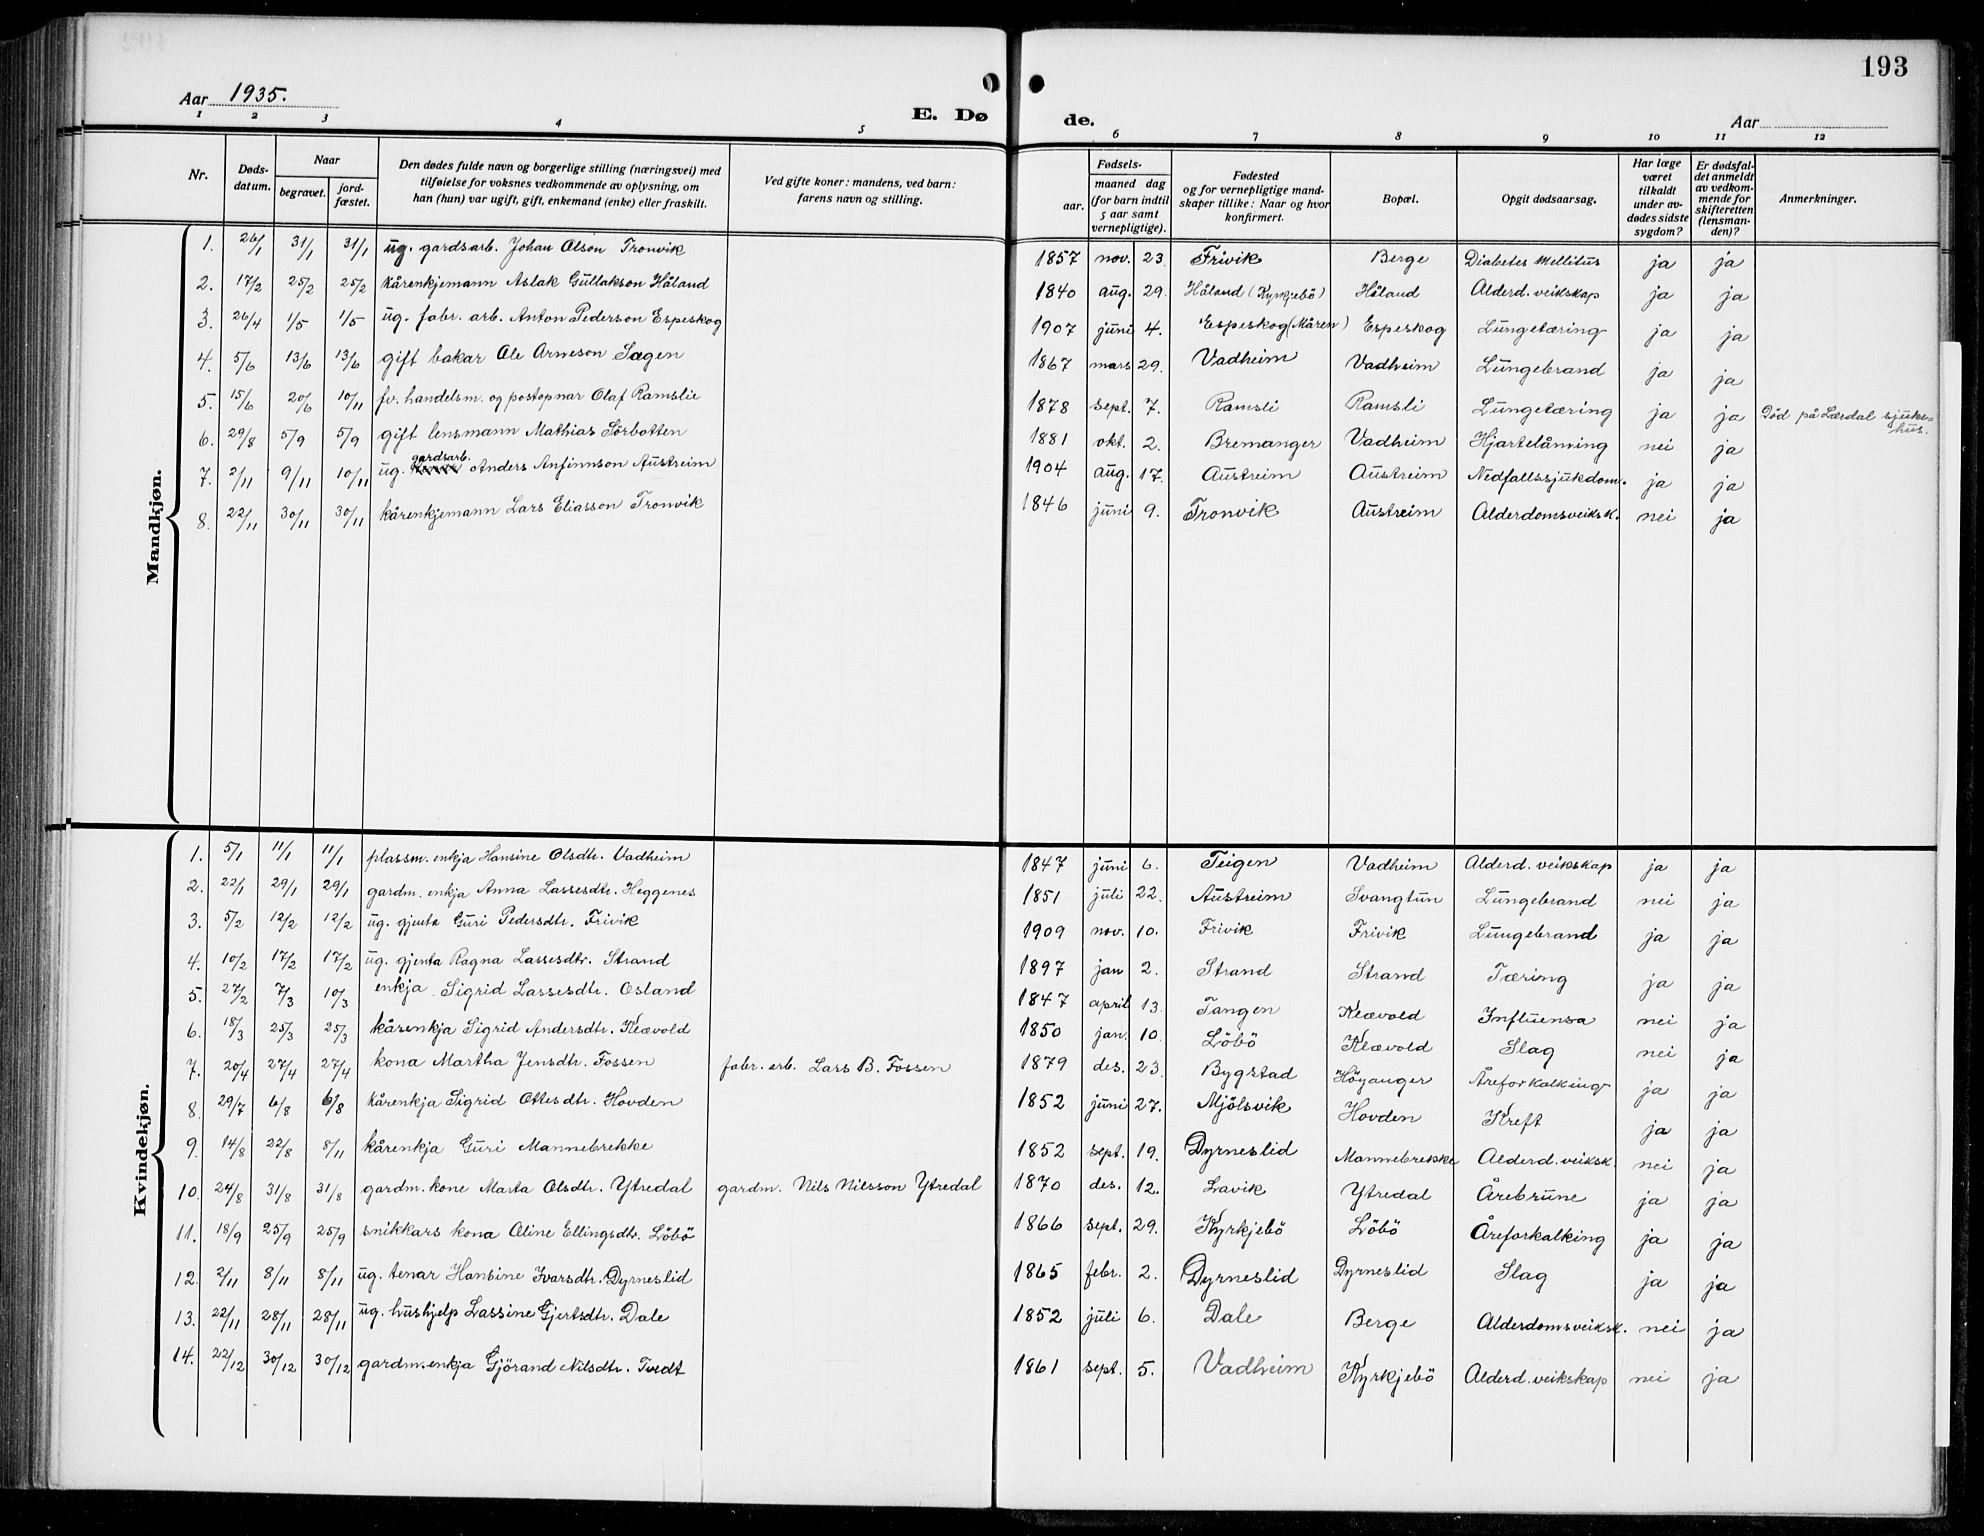 193
Aar 1935.
E. Døde.
Aar
1 2 3 4 5 6 7 8 9 10 11 12
Nr. Dødsdatum. Naar begravet. jordfæstet. Den dødes fulde navn og borgerlige stilling (næringsvei) med tilføielse for voksnes vedkommende av oplysning, om han (hun) var ugift, gift, enkemand (enke) eller fraskilt. Ved gifte koner: mandens, ved barn: farens navn og stilling. Fødselsaar. maaned dag (for barn indtil 5 aar samt vernepligtige). Fødested og for vernepligtige mandskaper tillike: Naar og hvor konfirmert. Bopæl. Opgit dødsaarsag. Har læge været tilkaldt under avdødes sidste sygdom? Er dødsfaldet anmeldt av vedkommende for skifteretten (lensmanden)? Anmerkninger.
Mandkjøn.
1. 26/1 31/1 31/1 ug. gardsarb. Johan Olson Tronvik 1857 nov. 23. Frivik Berge Diabetes Mellitus ja ja
2. 17/2 25/2 25/2 kårenkjemann Aslak Gullakson Håland 1840 aug. 29. Håland (Kyrkjebö) Håland Alderd. veikskap ja ja
3. 26/4 1/5 1/5 ug. fabr. arb. Anton Pederson Espeskog 1907 juni 4. Espeskog (Måren) Espeskog Lungetæring ja ja
4. 5/6 13/6 13/6 gift bakar Ole Arneson Sagen 1867 mars 29. Vadheim Vadheim Lungebrand ja ja
5. 15/6 20/6 10/11 fv. handelsm. og postopnar Olaf Ramslie 1878 sept. 7. Ramsli Ramsli Lungetæring ja ja Död på Lærdal sjukehus.
6. 29/8 5/9 5/9 gift lensmann Mathias Sörbotten 1881 okt. 2. Bremanger Vadheim Hjartelåming nei ja
7. 2/11 9/11 10/11 ug. gardsarb. Anders Anfinnson Austreim 1904 aug. 17. Austreim Austreim Nedfallssjukdom. ja ja
8. 22/11 30/11 30/11 kårenkjemann Lars Eliasson Tronvik 1846 juni 9. Tronvik Austreim Alderdomsveiksk. nei ja
Kvindekjøn.
1. 5/1 11/1 11/1 plassm. enkja Hansine Olsdtr. Vadheim 1847 juni 6. Teigen Vadheim Alderd. veikskap ja ja
2. 22/1 29/1 29/1 gardm. enkja Anna Lassesdtr. Heggenes 1851 juli 22. Austreim Svangtun Lungebrand nei ja
3. 5/2 12/2 12/2 ug. gjenta Guri Pedersdtr. Frivik 1909 nov. 10. Frivik Frivik Lungebrand ja ja
4. 10/2 17/2 17/2 ug. gjenta Ragna Lassesdtr. Strand 1897 jan 2. Strand Strand Tæring ja ja
5. 27/2 7/3 10/3 enkja Sigrid Lassesdtr. Osland 1847 april 13. Tangen Klævold Influensa nei ja
6. 18/3 25/3 25/3 kårenkja Sigrid Andersdtr. Klævold 1850 jan. 10. Löbö Klævold Slag nei ja
7. 20/4 27/4 27/4 kona Martha Jensdtr. Fossen fabr. arb. Lars B. Fossen 1879 des. 23. Bygstad Höyanger Åreforkalking ja ja
8. 29/7 6/8 6/8 kårenkja Sigrid Ottesdtr. Hovden 1852 juni 27. Mjölsvik Hovden Kreft ja ja
9. 14/8 22/8 8/11 kårenkja Guri Mannebrekke 1852 sept. 19. Dyrneslid Mannebrekke Alderd. veiksk. nei ja
10. 24/8 31/8 31/8 gardm. kone Marta Olsdtr. Ytredal gardm. Nils Nilsson Ytredal 1870 des. 12. Lavik Ytredal Årebrune ja ja
11. 18/9 25/9 25/9 snikkars kona Oline Ellingsdtr. Löbö 1866 sept. 29. Kyrkjebö Löbö Åreforkalking ja ja
12. 2/11 8/11 8/11 ug. tenar Hansine Ivarsdtr. Dyrneslid 1865 febr. 2. Dyrneslid Dyrneslid Slag ja ja
13. 22/11 28/11 28/11 ug. hushjelp Lassine Gjertsdtr. Dale 1852 juli 6. Dale Berge Alderdomsveiksk. nei ja
14. 22/12 30/12 30/12 gardm. enkja Gjörand Nilsdtr. Tvedt 1861 sept. 5. Vadheim Kyrkjebö Alderd. veikskap nei ja